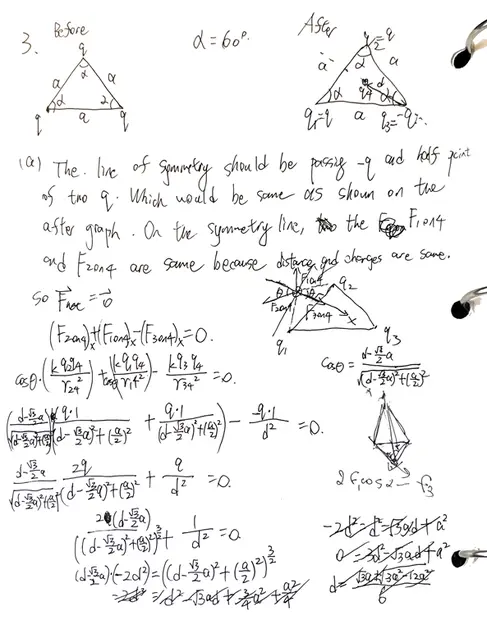 3. Before
α=60°.
After
q
a
α
a
α
2
q
a
q
q
a
α
a
α
d
q4
q1=q
a
q3=-q
(a) The line of symmetry should be passing -q and half point
of two q. Which would be same as shown on the
after graph. On the symmetry line, the F1on4
and F2on4 are same because distance and charges are same.
so Fnet=0
(F2on4)x+(F1on4)x-(F3on4)x=0.
F1on4
q2
F2on4
F3on4
x
q1
q3
cosθ·(kq2q4/r24²)+cosθ(kq1q4/r14²)-kq3q4/r34²=0.
cosθ=(d-√3/2a)/√((d-√3/2a)²+(a/2)²)
(d-√3/2a)/√((d-√3/2a)²+(a/2)²)(q·1/((d-√3/2a)²+(a/2)²)+q·1/((d-√3/2a)²+(a/2)²))-(-q·1)/d²=0.
(d-√3/2a)/√((d-√3/2a)²+(a/2)²) 2q/((d-√3/2a)²+(a/2)²)+q/d²=0.
2(d-√3/2a)/((d-√3/2a)²+(a/2)²)^3/2+1/d²=0
(d-√3/2a)·(-2d²)=((d-√3/2a)²+(a/2)²)^3/2
-2d²=d²-√3ad+3/4a²+a²/4
-2d²=d²-√3ad+a²
0=3d²-√3ad+a²
d=
6